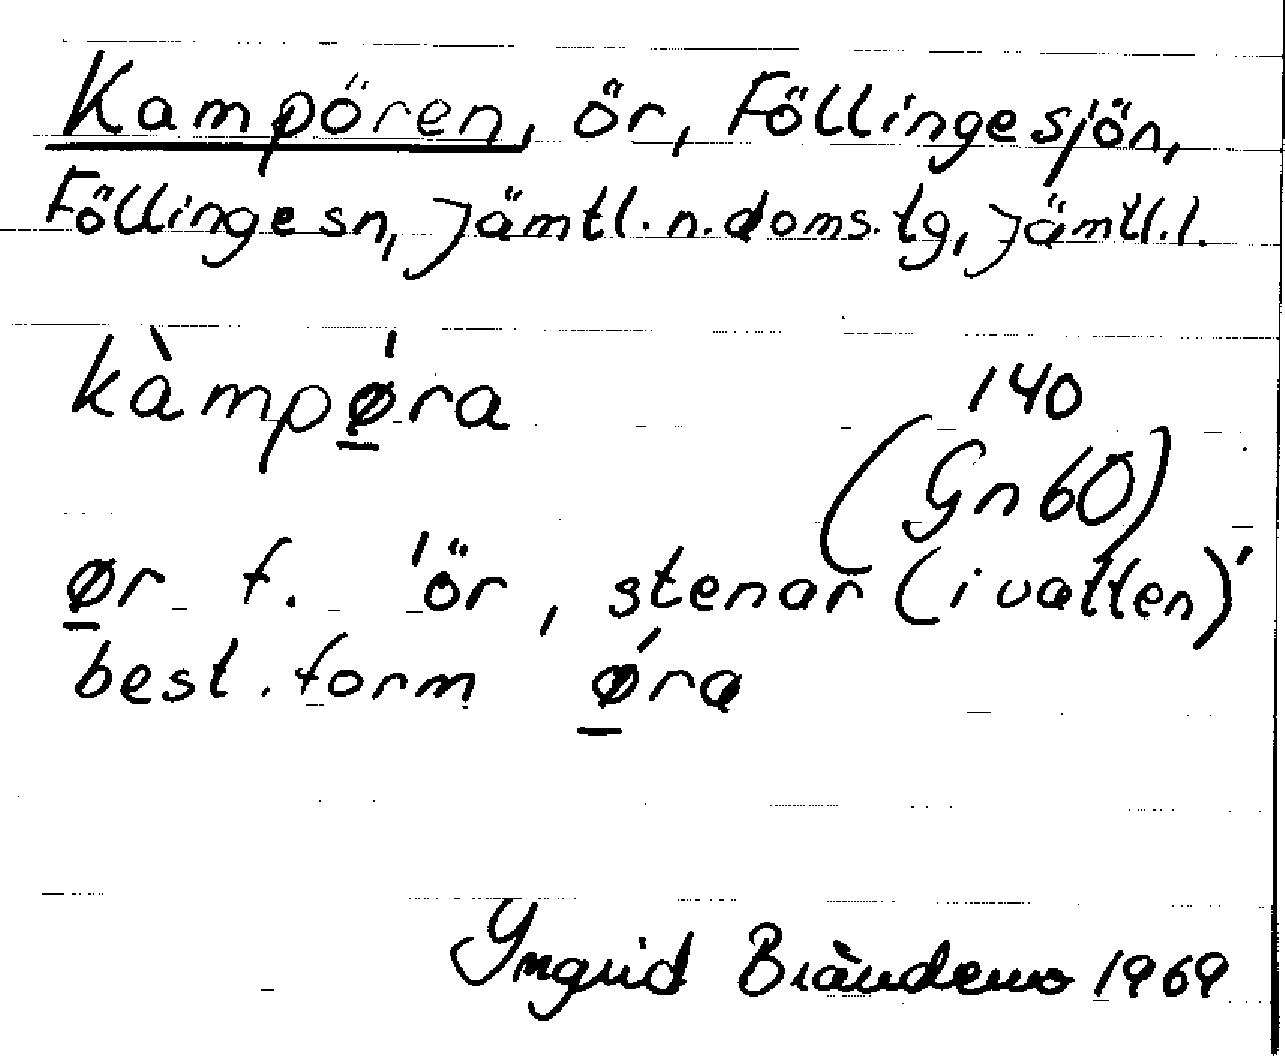 Kampören, ör, Föllingesjön,
Föllinge sn, Jämtl. n. doms. tg, Jämtl. l.
kàmpǿ̲ra
140
(Gn 60)
ø̲r f. 'ör, stenar (i vatten)'
best. form ǿ̲ra
Yngrid Brändemo 1969